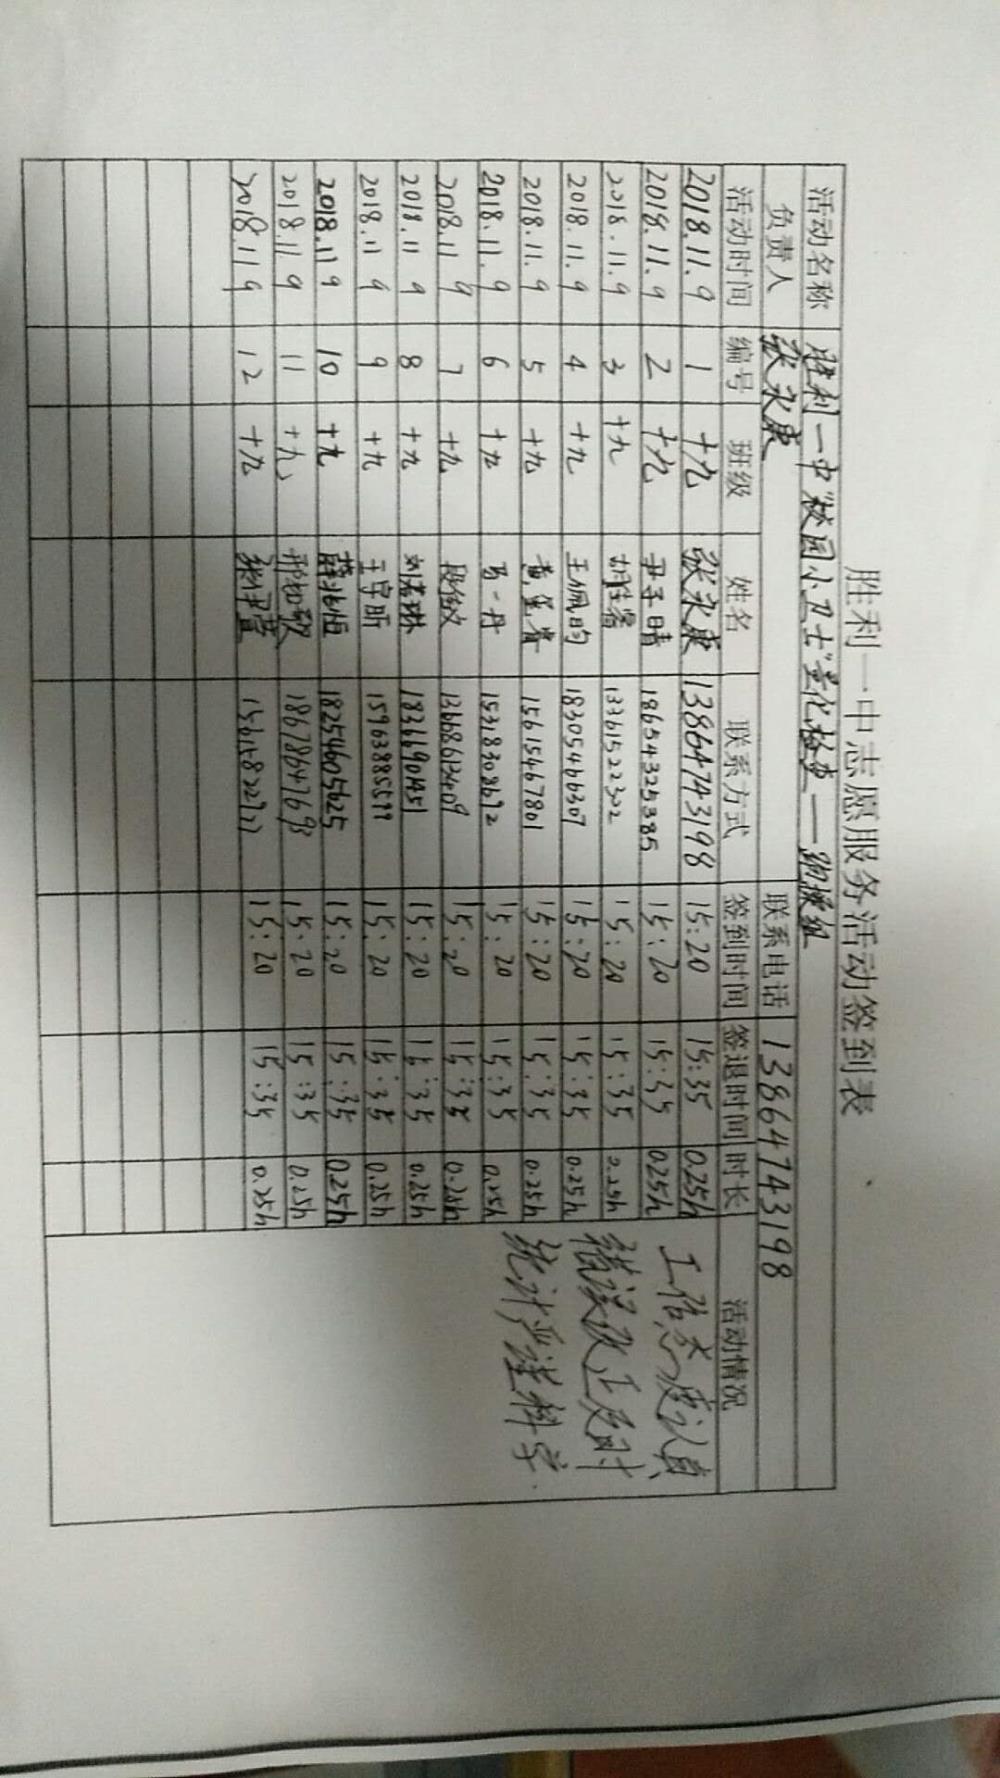 胜利一中志愿服务活动签到表
活动名称 胜利一中"校园小卫士"量化检查——跑操组
负责人 张永康 联系电话 13864743198
活动时间 编号 班级 姓名 联系方式 签到时间 签退时间 时长 活动情况
2018.11.9 1 十九 张永康 13864743198 15:20 15:35 0.25h 工作态度认真
2018.11.9 2 十九 尹子晴 18654325385 15:20 15:35 0.25h
2018.11.9 3 十九 13361522322 15:20 15:35 0.25h 错误改正及时
2018.11.9 4 十九 王佩昀 18305466307 15:20 15:35 0.25h
2018.11.9 5 十九 15615467801 15:20 15:35 0.25h 统计严谨科学
2018.11.9 6 十九 马一丹 15318308672 15:20 15:35 0.25h
2018.11.9 7 十九 15:20 15:35 0.25h
2018.11 9 8 十九 18366901451 15:20 15:35 0.25h
2018.11 9 9 十九 王宇昕 15:20 15:35 0.25h
2018.11 9 10 十九 薛兆恒 18254605625 15:20 15:35 0.25h
2018.11 9 11 十九 15:20 15:35 0.25h
2018.11 9 12 十九 15:20 15:35 0.25h